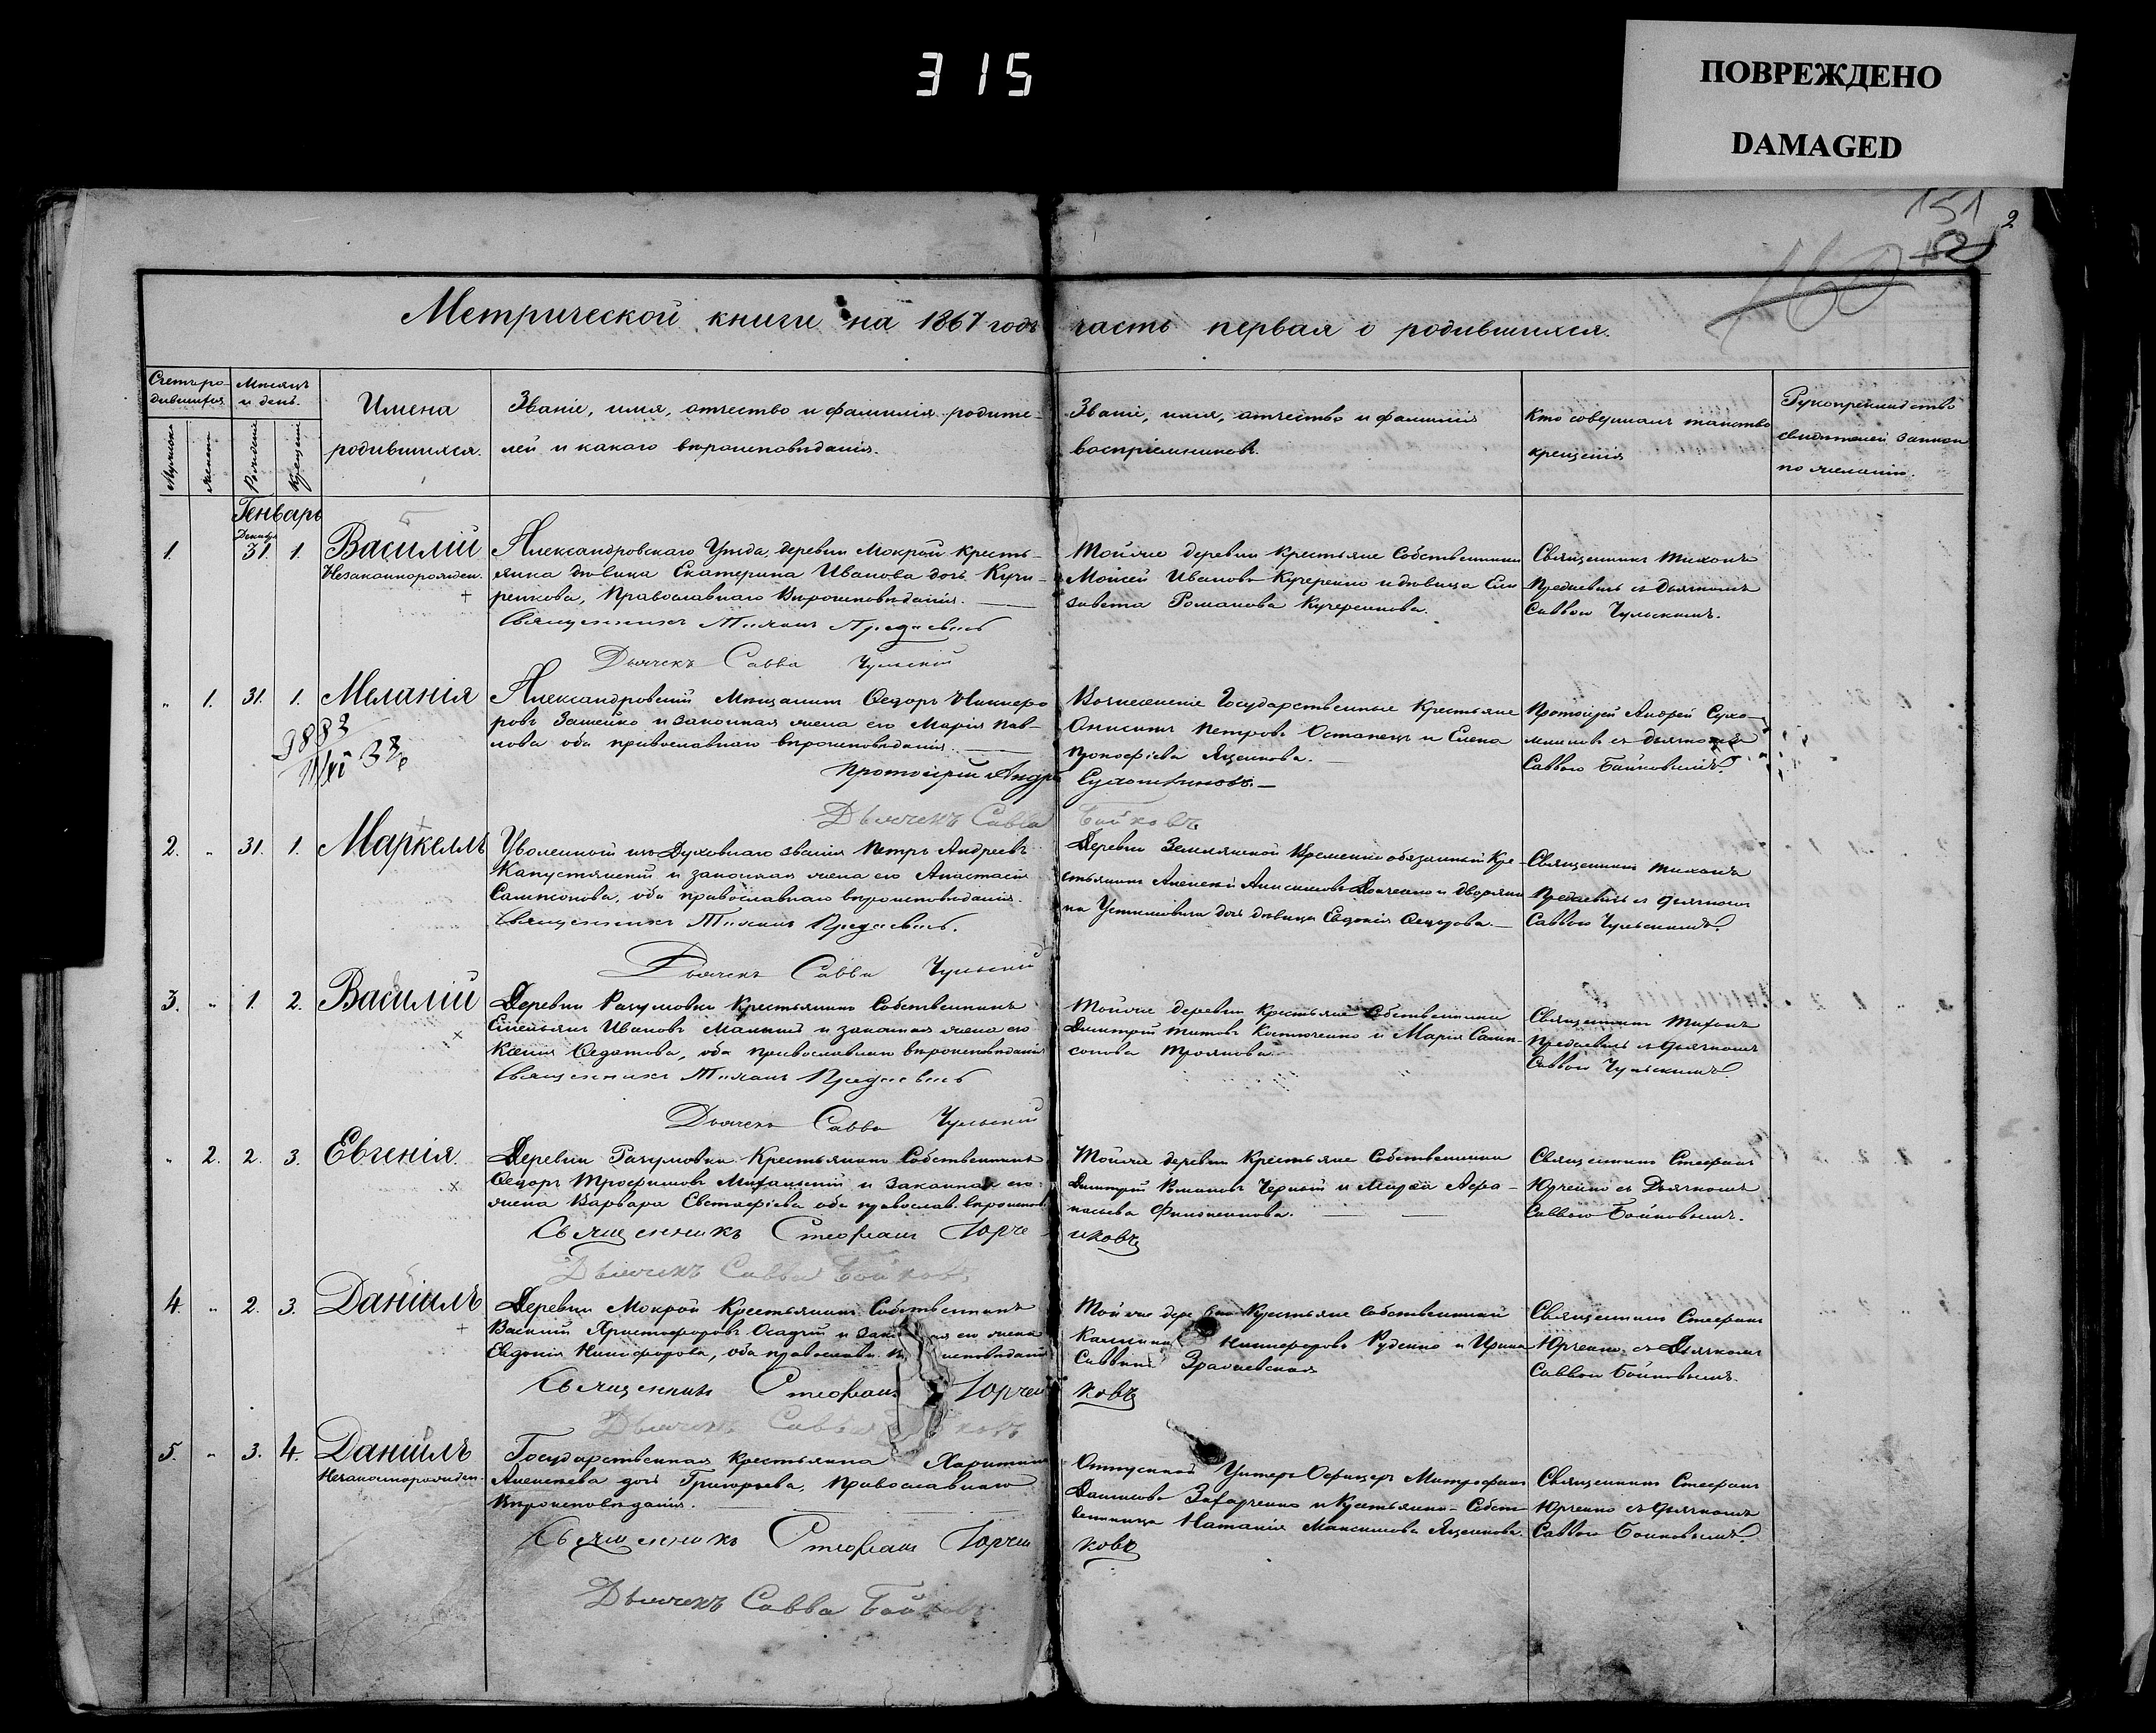 315
ПОВРЕЖДЕНО
DAMAGED
151
2
160
Метрической книги на 1867 годъ часть первая о родившихся.
Счетъ ро-
дившихся
Мѣсяцъ
и день.
Мужеска
женск
Рожденія
Крещенія
Имена
родившихся.
Званіе, имя, отчество и фамилія родите-
лей и какаго вѣроисповѣданія.
Званіе, имя, отчество и фамилія
воспріемниковъ.
Кто совершалъ таинство
крещенія
Рукоприкладство
свидѣтелей записи
по желанію.
Генварь
Декабр
1. 31. 1. Василій
Незаконнорожден.
Александровскаго Уѣзда, деревни Мокрой Кресть-
янка дѣвица Екатерина Иванова дочь Куче-
ренкова, Православнаго Вѣроисповѣданія.
Священникъ Тихонъ
Дьячекъ Савва Чульскій
Тойже деревни Крестьяне Собственники
Моисей Ивановъ Кучеренко и дѣвица Ели
завета Романова Кучеренкова.
Священникъ Тихонъ
съ Дьячкомъ
Саввою Чульскимъ.
" 1. 31. 1. Меланія
9883
Александровскій Мѣщанинъ Ѳедоръ Никифо
ровъ и законная жена его Марія Пав-
лова оба православнаго вѣроисповѣданія
Протоіерей Андрей
Дьячекъ Савва Бойковъ
Вознесенскіе Государственные Крестьяне
Онисимъ Петровъ Остапецъ и Елена
Прокофіева Яценкова.
Протоіерей Андрей
съ дьячкомъ
Саввою Бойковымъ.
2. " 31. 1. Маркеллъ
Уволенный изъ Духовнаго званія Петръ Андреевъ
Капустянскій и законная жена его Анастасія
Сампсонова, оба православнаго вѣроисповѣданія.
Священникъ Тихонъ
Дьячекъ Савва Чульскій
Деревни Временно обязанный Кре-
стьянинъ Алексей Анисимовъ и дворяни
на дочь дѣвица Евдокія Ѳедорова.
Священникъ Тихонъ
съ дьячкомъ
Саввою Чульскимъ.
3. " 1. 2. Василій
Деревни Разумовки Крестьянинъ Собственникъ
Емельянъ Ивановъ и законная жена его
Ксенія Ѳедотова, оба православнаго вѣроисповѣданія
Священникъ Тихонъ
Дьячекъ Савва Чульскій
Тойже деревни Крестьяне Собственники
Димитрій Титовъ Костюченко и Марія Самп-
сонова Троянова
Священникъ Тихонъ
съ дьячкомъ
Саввою Чульскимъ
" 2. 2. 3. Евгенія.
Деревни Разумовки Крестьянинъ Собственникъ
Ѳедоръ Трофимовъ и Законная его
жена Варвара Евстафіева оба православ. вѣроиспов.
Священникъ Стефанъ Юрче
нковъ
Дьячекъ Савва Бойковъ
Тойже деревни Крестьяне Собственники
Димитрій Романовъ Черный и Марѳа Аѳа-
насьева Филоненкова.
Священникъ Стефанъ
Юрченко съ Дьячкомъ
Саввою Бойковымъ.
4. " 2. 3. Даніилъ
Деревни Мокрой Крестьянинъ Собственникъ
Василій Христофоровъ Осадчій и его жена
Евдокія Никифорова, оба православн.
Священникъ Стефанъ Юрчен
ковъ
Дьячекъ Савва
Тойже деревни Крестьяне Собственники
Никифоровъ Руденко и Ирина
Саввина
Священникъ Стефанъ
Юрченко съ Дьячкомъ
Саввою Бойковымъ.
5. " 3. 4. Даніилъ
Незаконнорожден.
Государственная Крестьянка Харитина
Алексѣева дочь Григорьева, Православнаго
Вѣроисповѣданія.
Священникъ Стефанъ Юрчен
ковъ
Дьячекъ Савва Бойковъ
Отпускной Унтеръ Офицеръ Митрофанъ
Даниловъ Захарченко и Крестьянка-Собст-
венница Наталія Максимова Яценкова.
Священникъ Стефанъ
Юрченко съ дьячкомъ
Саввою Бойковымъ.